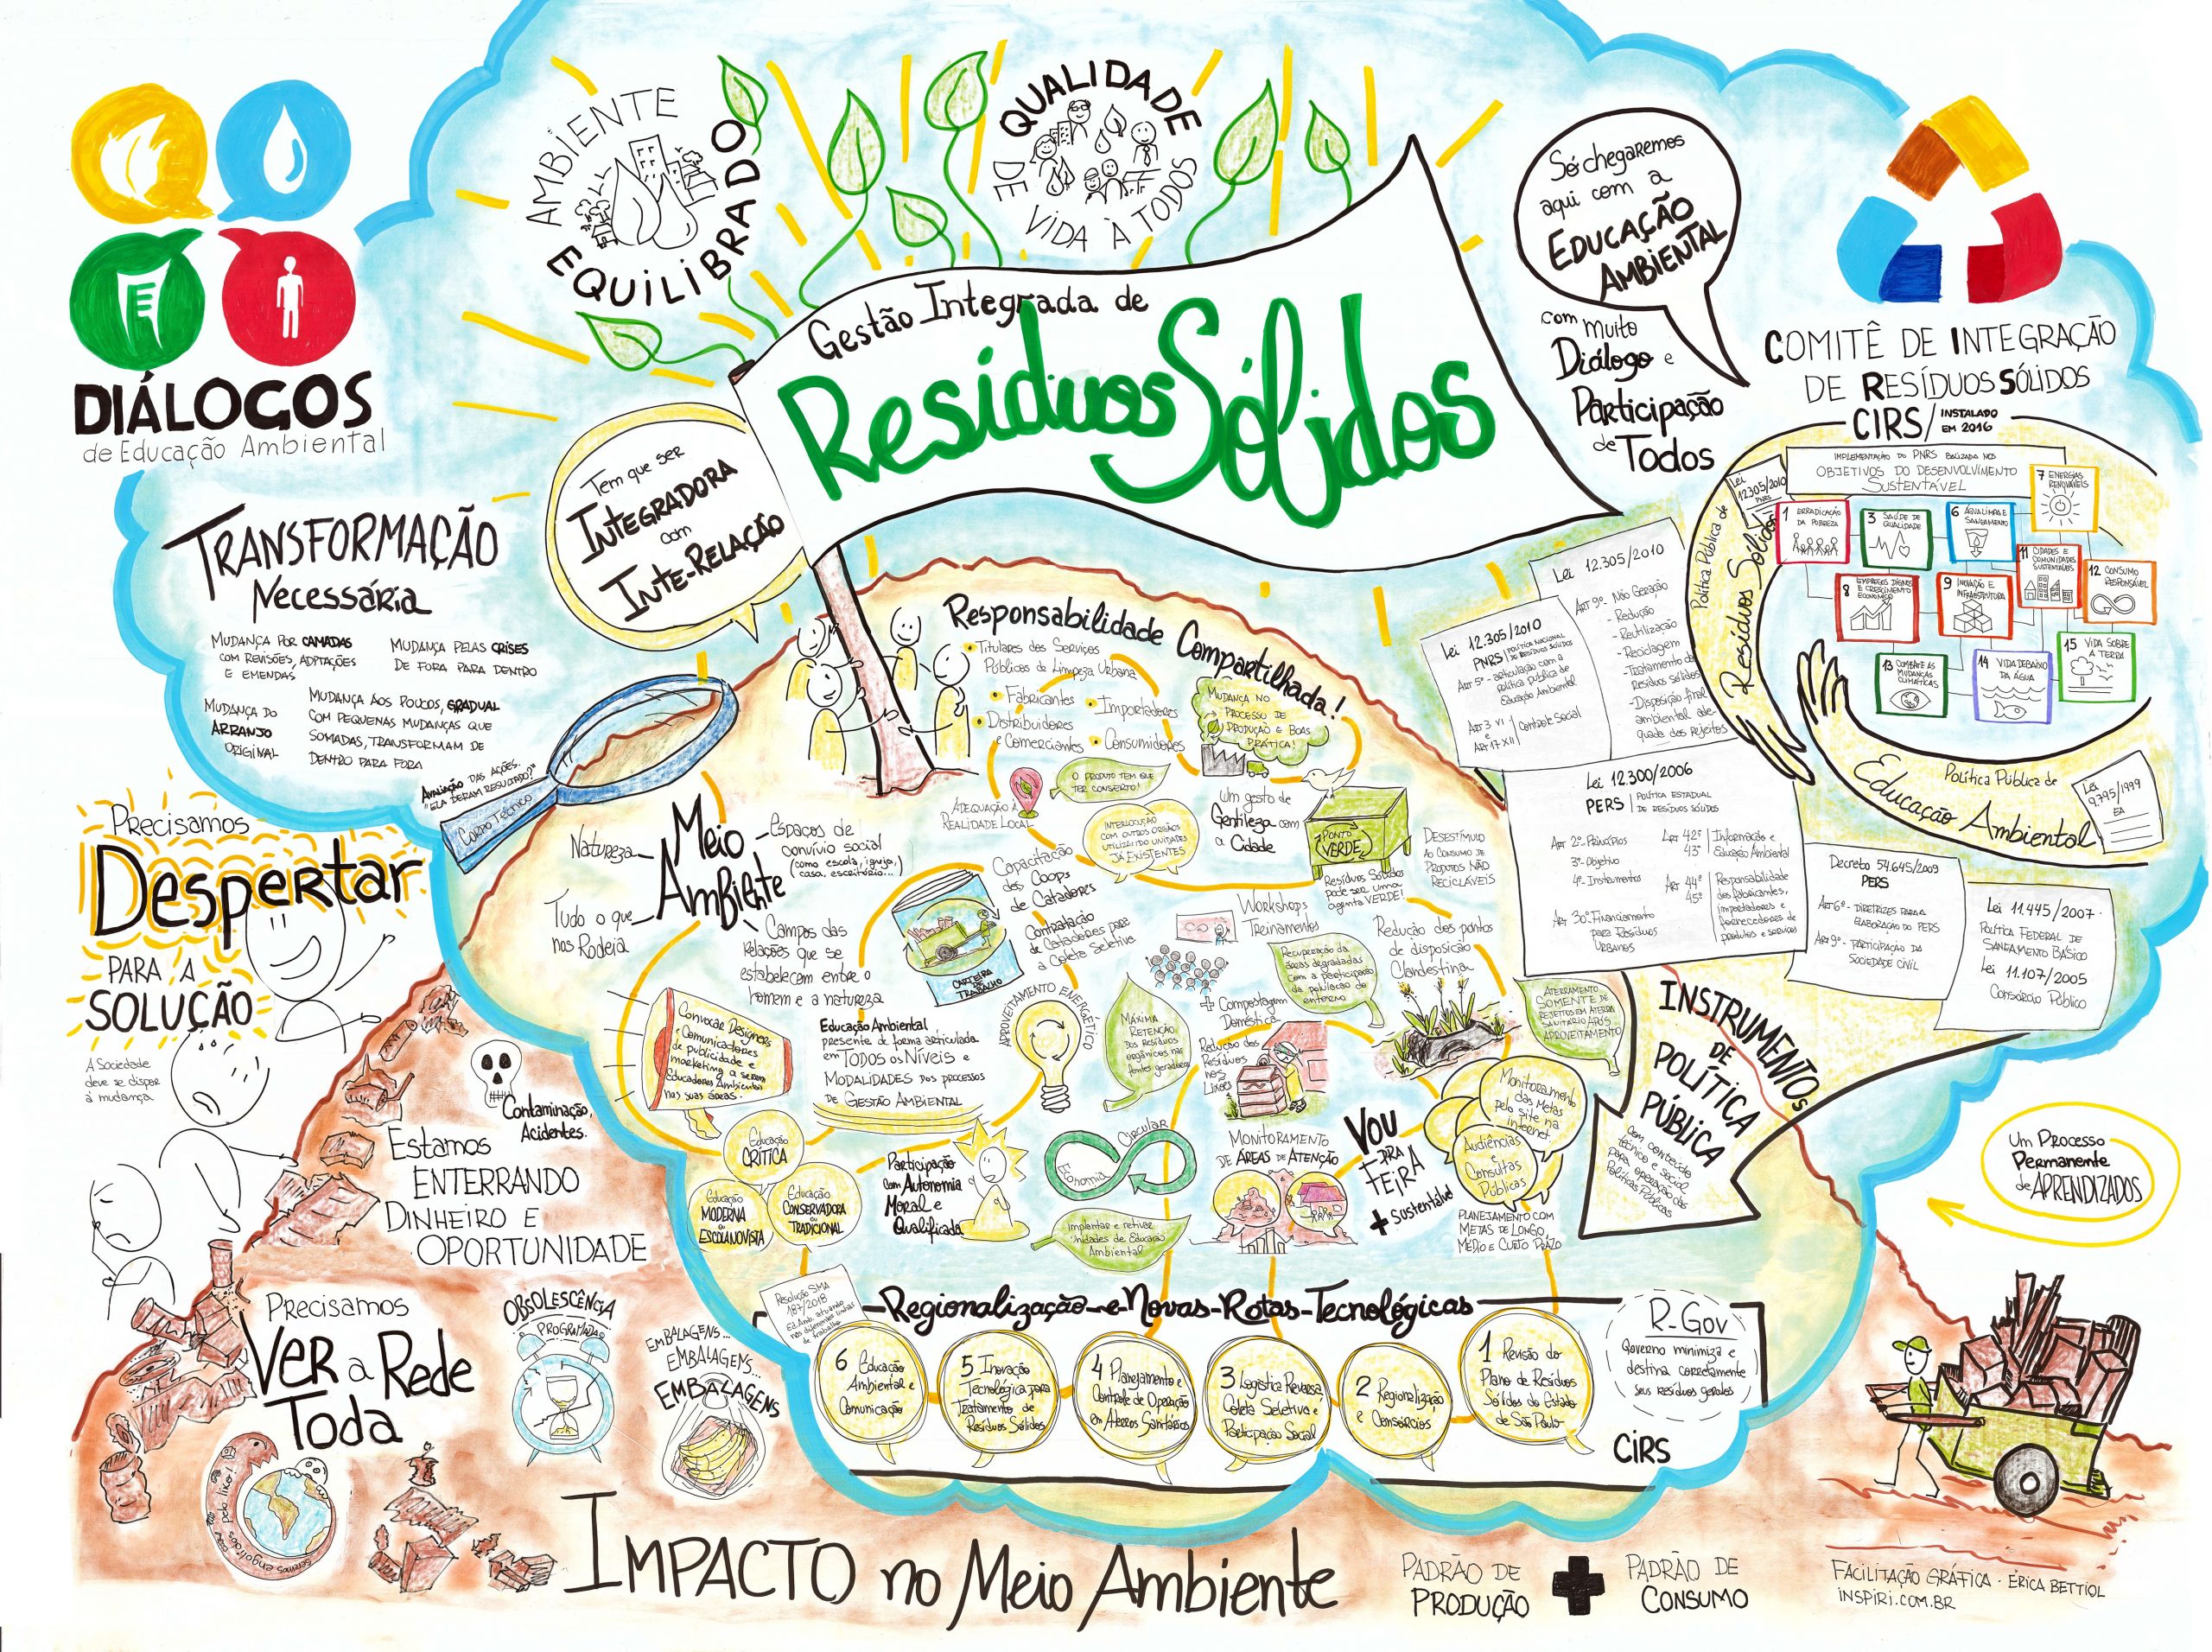 DIÁLOGOS
de Educação Ambiental
AMBIENTE
EQUILIBRADO
QUALIDADE
DE VIDA À TODOS
Gestão Integrada de
Resíduos Sólidos
Só chegaremos
aqui com a
EDUCAÇÃO
AMBIENTAL
com muito
Diálogo e
Participação
de Todos
COMITÊ DE INTEGRAÇÃO
DE RESÍDUOS SÓLIDOS
CIRS/ INSTALADO
EM 2016
IMPLEMENTAÇÃO DO PNRS BALIZADA NOS
OBJETIVOS DO DESENVOLVIMENTO
SUSTENTÁVEL
Política Pública de
Resíduos Sólidos
Lei
12305/2010
PNRS
7 ENERGIAS
RENOVÁVEIS
1 ERRADICAÇÃO
DA POBREZA
3 SAÚDE DE
QUALIDADE
6 ÁGUA LIMPA E
SANEAMENTO
11 CIDADES E
COMUNIDADES
SUSTENTÁVEIS
12 CONSUMO
RESPONSÁVEL
8 EMPREGOS DIGNOS
E CRESCIMENTO
ECONÔMICO
9 INOVAÇÃO E
INFRAESTRUTURA
13 COMBATE AS
MUDANÇAS
CLIMÁTICAS
14 VIDA DEBAIXO
DA ÁGUA
15 VIDA SOBRE
A TERRA
Política Pública de
Educação Ambiental
Lei
9.795/1999
EA
TRANSFORMAÇÃO
Necessária
MUDANÇA POR CAMADAS
COM REVISÕES, ADPTAÇÕES
E EMENDAS
MUDANÇA PELAS CRISES
DE FORA PARA DENTRO
MUDANÇA DO
ARRANJO
ORIGINAL
MUDANÇA AOS POUCOS, GRADUAL
COM PEQUENAS MUDANÇAS QUE
SOMADAS, TRANSFORMAM DE
DENTRO PARA FORA
AVALIAÇÃO DAS AÇÕES.
"ELA DERAM RESULTADO?"
CORPO TÉCNICO
Tem que ser
INTEGRADORA
com
INTE-RELAÇÃO
Responsabilidade Compartilhada!
• Titulares dos Serviços
Públicos de Limpeza Urbana
• Fabricantes
• Importadores
• Distribuidores
e Comerciantes
• Consumidores
MUDANÇA NO
PROCESSO DE
PRODUÇÃO E BOAS
PRÁTICA!
ADEQUAÇÃO À
REALIDADE LOCAL
O PRODUTO TEM QUE
TER CONSERTO!
INTERLOCUÇÃO
COM OUTROS ÓRGÃOS
UTILIZANDO UNIDADES
JÁ EXISTENTES
Um gesto de
Gentileza com
a Cidade
PONTO
VERDE
Resíduos Sólidos
pode ser uma
agenta VERDE!
DESESTÍMULO
AO CONSUMO DE
PRODUTOS NÃO
RECICLÁVEIS
Lei 12.305/2010
ART 9º - Não Geração
- Redução
- Reutilização
- Reciclagem
- Tratamento dos
Resíduos sólidos
- Disposição final
ambiental ade-
quada dos rejeitos
Lei 12.305/2010
PNRS | POLÍTICA NACIONAL
DE RESÍDUOS SÓLIDOS
ART 5º - articulação com a
política pública de
Educação Ambiental
ART 3 VI
e
ART 17 XII | Controle Social
Lei 12.300/2006
PERS | POLÍTICA ESTADUAL
DE RESÍDUOS SÓLIDOS
ART 2º - Princípios
3º - Objetivo
4º - Instrumentos
ART 30º - Financiamento
para Resíduos
Urbanos
ART 42º
43º | Informação e
Educação Ambiental
ART 44º
45º | Responsabilidade
dos fabricantes,
importadores e
fornecedores de
produtos e serviços
Decreto 54.645/2009
PERS
ART 6º - DIRETRIZES PARA A
ELABORAÇÃO DO PERS
ART 9º - PARTICIPAÇÃO DA
SOCIEDADE CIVIL
Lei 11.445/2007 -
POLÍTICA FEDERAL DE
SANEAMENTO BÁSICO
Lei 11.107/2005
Consórcio Público
INSTRUMENTOS
DE
POLÍTICA
PÚBLICA
com conteúdo
técnico e social
para operação das
Políticas Públicas
Precisamos
Despertar
PARA A
SOLUÇÃO
A Sociedade
deve se dispor
à mudança
Natureza
Meio
Ambiente
Espaços de
convívio social
(como escola, igreja,
casa, escritório...)
Tudo o que
nos Rodeia
Campos das
relações que se
estabelecem entre o
homem e a natureza
Capacitação
das Coops
de Catadores
Contratação
de Catadores para
a Coleta Seletiva
CARTEIRA
DE
TRABALHO
Workshops
Treinamentos
Recuperação da
áreas degradadas
com a participação
da população do
entorno
Redução dos pontos
de disposição
Clandestina
+ Compostagem
Doméstica
ATERRAMENTO
SOMENTE DE
REJEITOS EM ATERRO
SANITÁRIO APÓS
APROVEITAMENTO
Convocar Designers
e Comunicadores
de publicidade e
marketing a serem
Educadores Ambientais
nas suas áreas.
Educação Ambiental
presente de forma articulada
em TODOS OS NÍVEIS e
MODALIDADES DOS PROCESSOS
DE GESTÃO AMBIENTAL
APROVEITAMENTO ENERGÉTICO
MÁXIMA
RETENÇÃO
DOS RESÍDUOS
orgânicos nas
fontes geradoras
Redução dos
Resíduos
nos
Lixões
Monitoramento
das Metas
pelo site na
internet.
Audiências
e
Consultas
Públicas
Educação
CRÍTICA
Educação
MODERNA
ou
ESCOLANOVISTA
Educação
CONSERVADORA
ou
TRADICIONAL
Participação
com Autonomia
Moral e
Qualificada
Economia
Circular
Implantar e retivar
Unidades de Educação
Ambiental
MONITORAMENTO
DE ÁREAS DE ATENÇÃO
VOU
PRA
FEIRA
+ sustentável
PLANEJAMENTO COM
METAS DE LONGO,
MÉDIO E CURTO PRAZO
Contaminação,
Acidentes.
Estamos
ENTERRANDO
DINHEIRO E
OPORTUNIDADE
Um Processo
Permanente
de APRENDIZADOS
Precisamos
VER a Rede
Toda
OBSOLESCÊNCIA
PROGRAMADA
EMBALAGENS...
EMBALAGENS...
EMBALAGENS
Seremos engolidos pelo lixo!
Resolução SMA
187/2018
Ed. Amb. atuando
nas diferentes linhas
de trabalho
Regionalização e Novas Rotas Tecnológicas
6 Educação
Ambiental e
Comunicação
5 Inovação
Tecnológica para
Tratamento de
Resíduos Sólidos
4 Planejamento e
Controle de Operação
em Aterros Sanitários
3 Logística Reversa,
Coleta Seletiva e
Participação Social
2 Regionalização
e Consórcios
1 Revisão do
Plano de Resíduos
Sólidos do Estado
de São Paulo
R-Gov
Governo minimiza e
destina corretamente
seus resíduos gerados
CIRS
IMPACTO no Meio Ambiente
PADRÃO DE
PRODUÇÃO
+
PADRÃO DE
CONSUMO
FACILITAÇÃO GRÁFICA - ÉRICA BETTIOL
INSPIRI.COM.BR